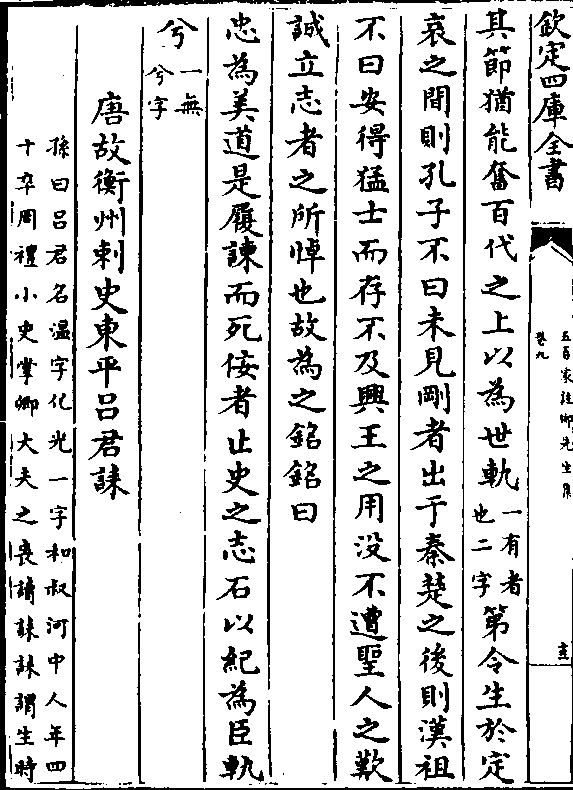 欽定四庫全書
五百家註柳先生集
卷九
其節猶能奮百代之上以為世軌一有者也二字第令生於定
哀之間則孔子不曰未見剛者出于秦楚之後則漢祖
不曰安得猛士而存不及興王之用没不遭聖人之歎
誠立志者之所悼也故為之銘銘曰
忠為美道是履諫而死佞者止史之志石以紀為臣軌
兮一無兮字
唐故衡州刺史東平呂君誄
孫曰呂君名溫字化光一字和叔河中人年四
十卒周禮小史掌卿大夫之喪讀誄誄謂生時